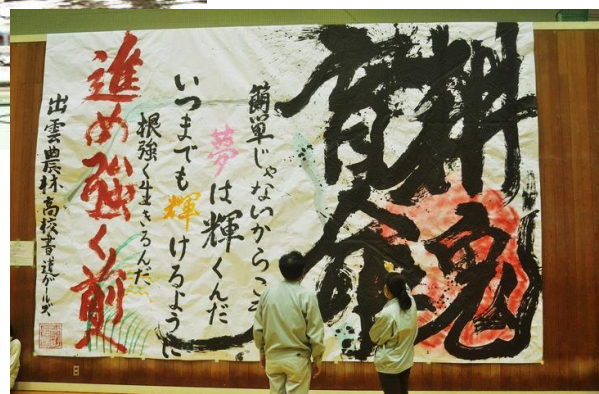 耕魂
育命
簡単じゃないからこそ
夢は輝くんだ
いつまでも輝けるように
根強く生きるんだ
進め強く前へ
出雲農林高校書道ガールズ